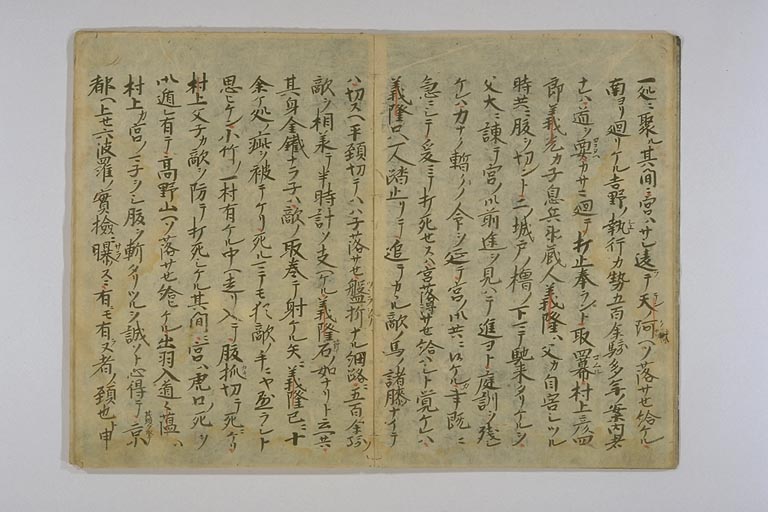 一処ニ聚ル其間ニ宮ハサシ遠テ天ノ河ヘソ落サセ給ケル
南ヨリ廻リケル吉野ノ執行カ勢五百余騎多年ノ案内者
ナレハ道ヲ要カサニ廻テ打止奉ラント取篭ム村上彦四
郎義光カ子息兵衛蔵人義隆ハ父カ自害シツル
時共ニ腹ヲ切ント二ノ城戸ノ櫓ノ下ニテ馳来タリケルヲ
父大ニ諫テ宮ノ御前途ヲ見ハテ進ヨト庭訓ヲ残
ケレハ力ナク暫クノ命ヲ延テ宮ノ御共ニ候ケルカ事既ニ
急ニシテ爰ニテ打死セスハ宮落サセ給ハシト覚ケレハ
義隆只一人踏止リテ追テカヽル敵ノ馬ノ諸膝ナイテ
ハ切スヘ平頸切テハハ子落サセ盤折ナル細路ニ五百余騎ノ
敵ヲ相義テ半時計ソ支ヘケル義隆石ノ如ナリト云共
其身金鐵ナラ子ハ敵ノ取巻テ射ケル矢ニ義隆已ニ十
余ケ処ノ疵ヲ被テケリ死ルニテモ猶敵ノ手ニヤ歪ラント
思ヒケン小竹ノ一村有ケル中ヘ走リ入テ腹掻切テ死ニケリ
村上父子カ敵ヲ防テ打死シケル其間ニ宮ハ虎口ノ死ヲ
御遁レ有テ高野山ヘソ落サセ給ヒケル出羽入道々薀ハ
村上カ宮ノマ子ヲシ腹ヲ斬タリツルヲ誠ソト心得テ京
都ヘ上セ六波羅ノ實檢ニ曝スニ有モ有ヌ者ノ頸也ト申